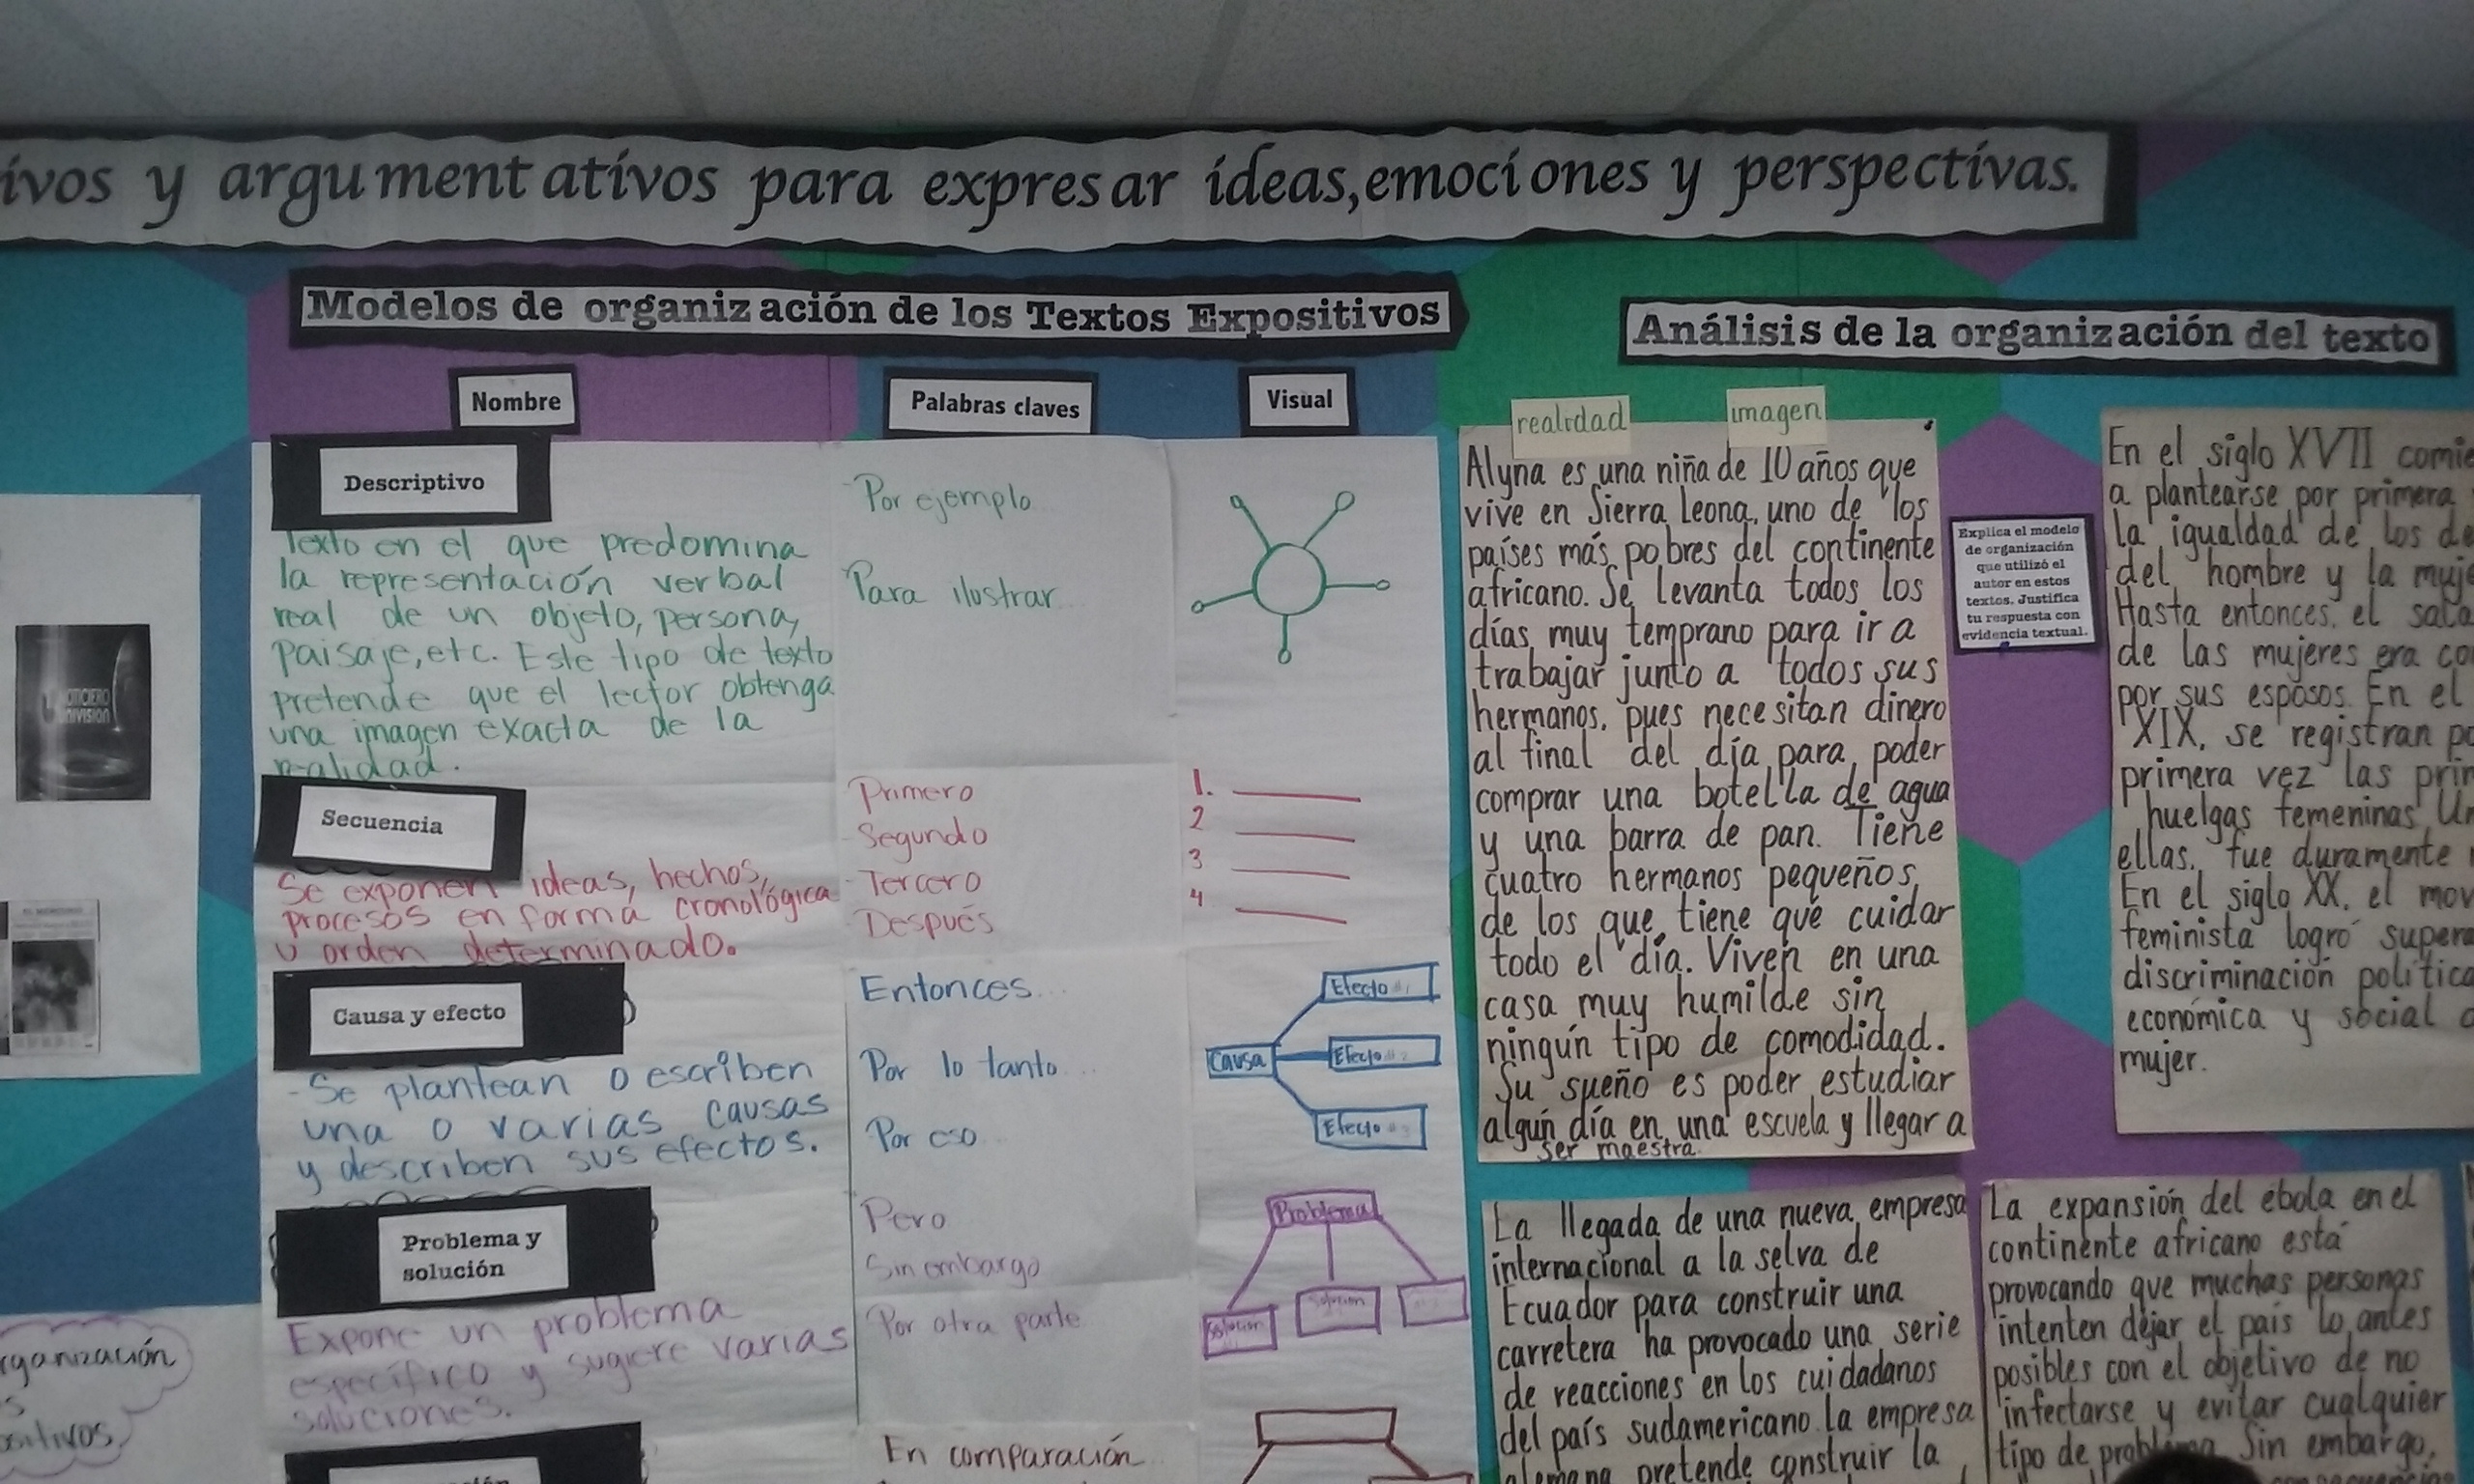 ivos y argumentativos para expresar ideas, emociones y perspectivas.
Modelos de organización de los Textos Expositivos
Nombre
Palabras claves
Visual
Descriptivo
Texto en el que predomina
la representación verbal
real de un objeto, persona,
paisaje, etc. Este tipo de texto
pretende que el lector obtenga
una imagen exacta de la
realidad.
-Por ejemplo
Para ilustrar
Secuencia
Se exponen ideas, hechos,
procesos en forma cronológica
u orden determinado.
Primero
-Segundo
-Tercero
Después
1.
2
3
4
Causa y efecto
-Se plantean o escriben
una o varias causas
y describen sus efectos.
Entonces...
Por lo tanto...
Por eso
Causa
Efecto #1
Efecto #2
Efecto #3
Problema y
solución
Expone un problema
específico y sugiere varias
soluciones.
Pero
Sin embargo
Por otra parte
Problema
Solución
Solución
En comparación
Análisis de la organización del texto
realidad
imagen
Alyna es una niña de 10 años que
vive en Sierra Leona, uno de los
países más pobres del continente
africano. Se levanta todos los
días muy temprano para ir a
trabajar junto a todos sus
hermanos, pues necesitan dinero
al final del día para poder
comprar una botella de agua
y una barra de pan. Tiene
cuatro hermanos pequeños,
de los que tiene que cuidar
todo el día. Viven en una
casa muy humilde sin
ningún tipo de comodidad.
Su sueño es poder estudiar
algún día en una escuela y llegar a
ser maestra.
Explica el modelo
de organización
que utilizó el
autor en estos
textos. Justifica
tu respuesta con
evidencia textual.
En el siglo XVII comie
a plantearse por primera
la igualdad de los de
del hombre y la muje
Hasta entonces, el sala
de las mujeres era co
por sus esposos. En el
XIX, se registran po
primera vez las prin
huelgas femeninas. Un
ellas, fue duramente
En el siglo XX, el mov
feminista logró supera
discriminación política
económica y social
mujer.
La llegada de una nueva empresa
internacional a la selva de
Ecuador para construir una
carretera ha provocado una serie
de reacciones en los cuidadanos
del país sudamericano. La empresa
alemana pretende construir la
La expansión del ébola en el
continente africano está
provocando que muchas personas
intenten dejar el país lo antes
posibles con el objetivo de no
infectarse y evitar cualquier
tipo de problema. Sin embargo,
rganización
s
ositivos